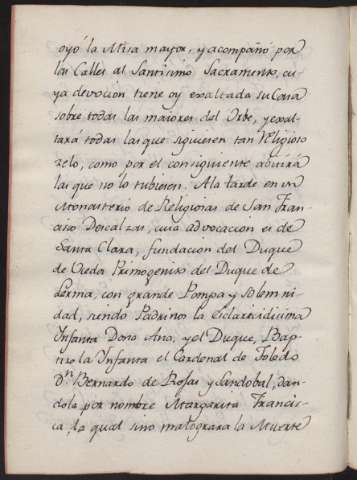 oyó la Misa mayor, y acompañó por
las Calles al Santísimo Sacramento, cu-
ya devocion tiene oy exaltada su Casa
sobre todas las maiores del Orbe, y exal-
tará todas las que siguieren tan Religioso
zelo, como por el consiguiente abatirá
las que no lo tubieren. A la tarde en un
Monasterio de Religiosas de San Fran-
cisco Descalzas, cuia advocacion es de
Santa Clara, fundacion del Duque
de Uceda Primogenito del Duque de
Lerma, con grande Pompa y solemni-
dad, siendo Padrinos la Esclarecidisima
Infanta Doña Ana, y el Duque, Bap-
tizo la Infanta el Cardenal de Toledo
Dn. Bernardo de Rojas y Sandobal, dan-
dola por nombre Margarita Francis-
ca, la qual sino malograra la Muerte